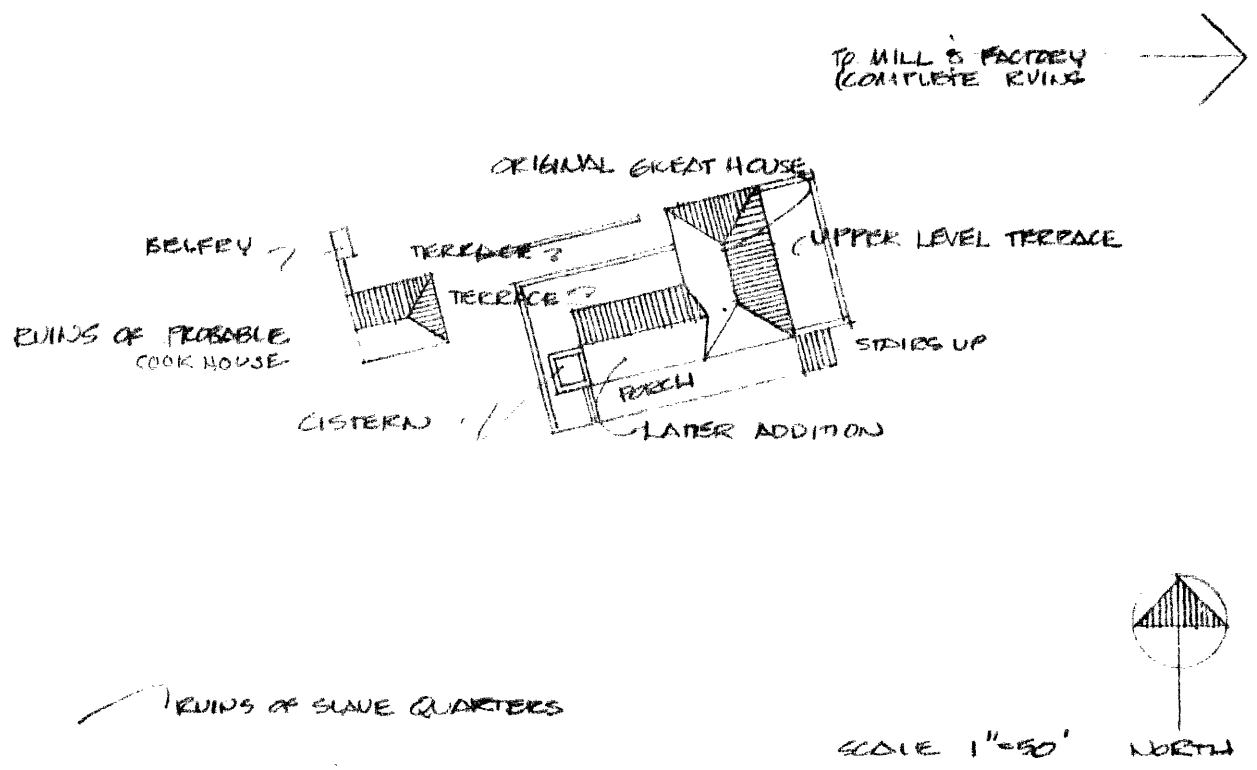 TO MILL & FACTORY
(COMPLETE RUINS
ORIGINAL GREAT HOUSE
BELFRY
TERRACE ?
UPPER LEVEL TERRACE
TERRACE ?
RUINS OF PROBABLE
COOK HOUSE
STAIRS UP
PORCH
CISTERN
LATTER ADDITION
RUINS OF SLAVE QUARTERS
SCALE 1"=50'
NORTH